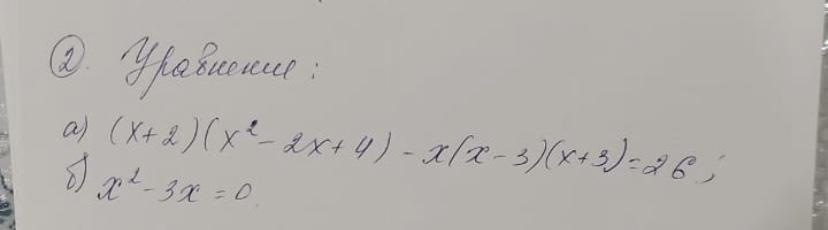 ②. Уравнение:
а) (x+2)(x²-2x+4)-x(x-3)(x+3)=26;
б) x²-3x=0.